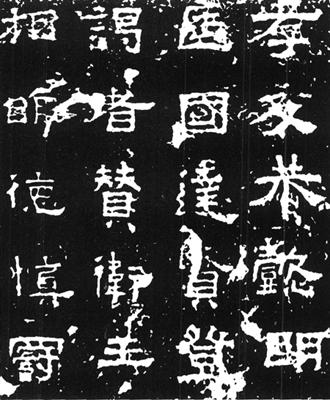 孝友恭懿明
匡國達賢登
謁者贊衛王
相明德慎罰